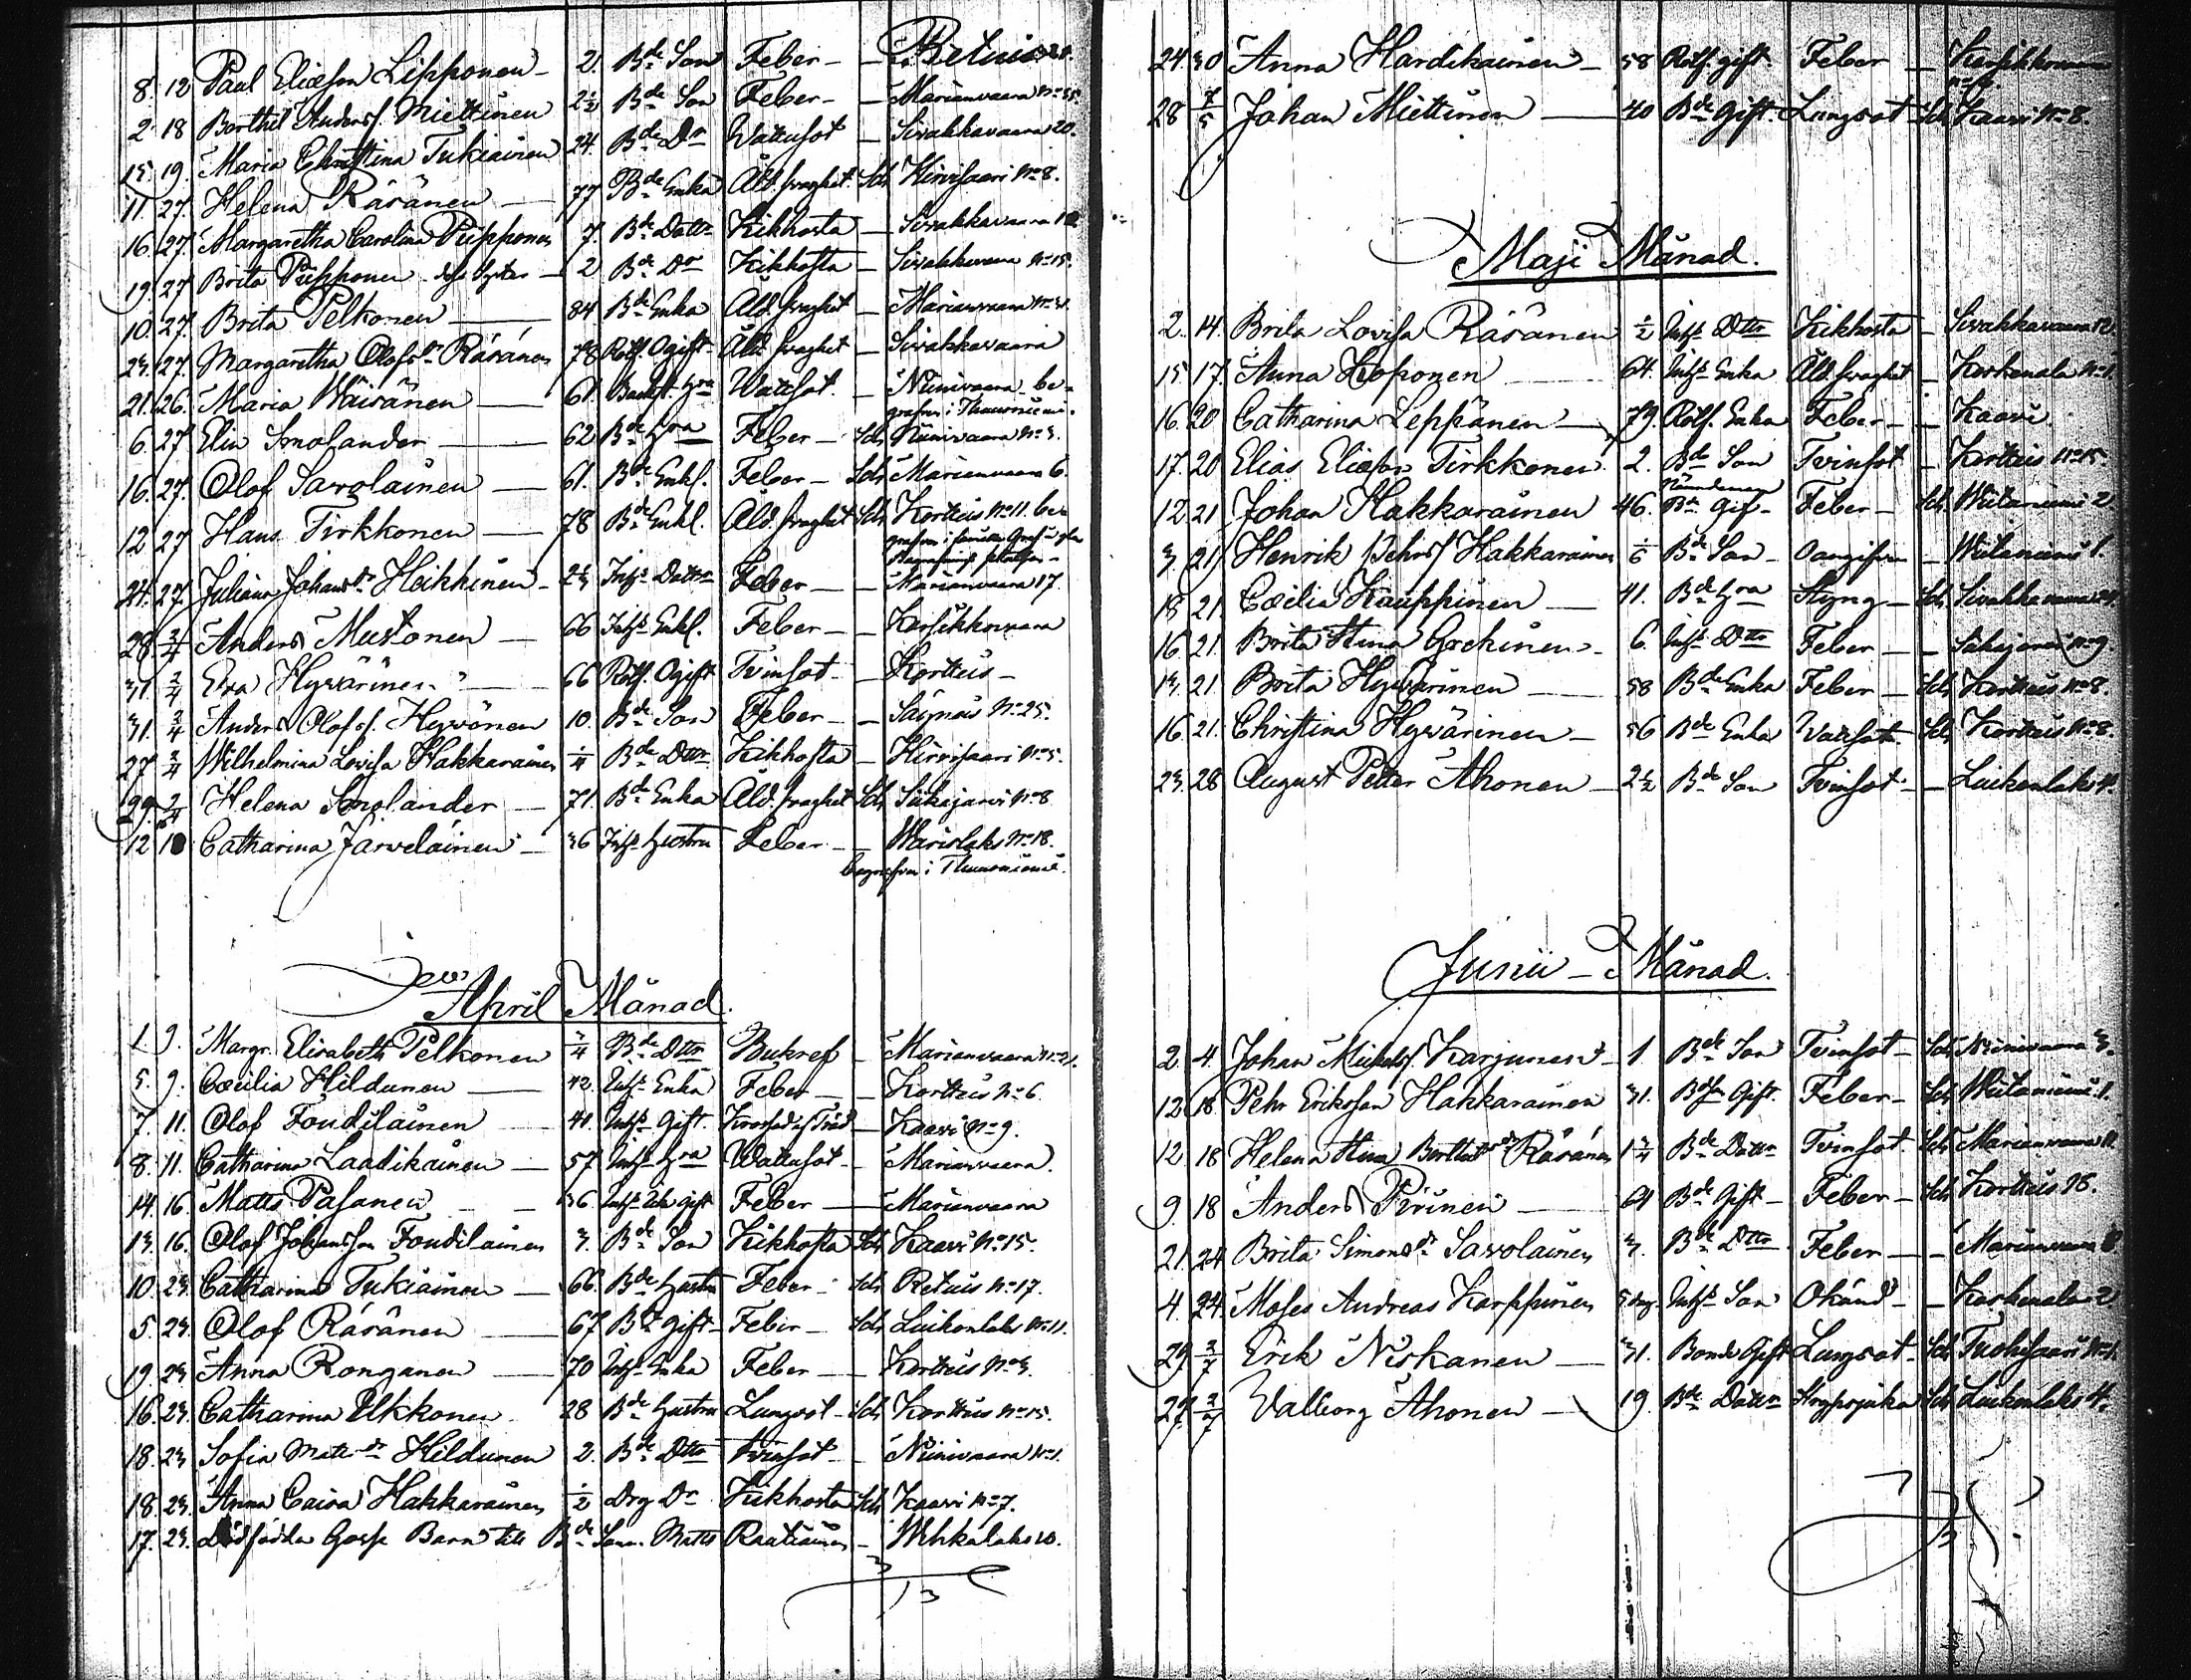 8. 12 Paul Eliæson Lipponen - 2. Bde Son Feber - - Retuis
2. 18 Berthil Anders s. Miettinen 2½ Bde Son Feber - - Marianvaara No 35.
15. 19. Maria Christina Tukiainen 24. Bde Dr Wattusot - Sivakkavaara 20.
11. 27. Helena Räsänen - 77 Bde Enka Åld. svaghet. Sch Hirvisaari No 8.
16. 27. Margaretha Carolina Piipponen 7. Bde Dottr Kikhosta - Sivakkavaara
19. 27 Brita Piipponen dess Syster - 2 Bde Dr Kikhosta - Sivakkavaara No 15.
10. 27. Brita Pelkonen - 84 Bde Enka Åld. svaghet - Marianvaara No 31.
23. 27. Margaretha Olofs dr Räsänen 78 Rotf. Ogift Åld. svaghet - Sivakkavaara
21. 26. Maria Wäisänen - 61. Backst. Hra Wattsot. - Niinivaara be-
grafven i Thuusniemi.
6. 27 Elin Smolander - 62 Bde Hra Feber - Sch Niinivaara No 3.
16. 27. Olof Savolainen - 61. Bde Enkl. Feber - Sch Marianvaara 6.
12 27 Hans Tirkkonen - 78 Bde Enkl. Åld. svaghet Sch Kortteis No 11. be-
grafven i
24. 27. Juliana Johans dr Heikkinen - 2¾ Inhs Dottr Feber - - Marianvaara 17.
28 2/4 Anders Mustonen - 66 Inhs Enkl. Feber - - Karsikkovaara
31. 2/4 Eva Hyvärinen - 66 Rotf. Ogift Tvinsot - - Kortteis -
31. 2/4 Anders Olofs s. Hyvönen 10. Bde Son Feber - - Säyneis No 25.
27 2/4 Wilhelmina Lovisa Hakkarainen ¼ Bde Dttr Kikhosta - Hirvisaari No 5.
29. 2/4 Helena Smolander - 71. Bde Enka Åld. svaghet Sch Siikajärvi No 8
12 10 Catharina Järveläinen - 36 Inhs Hustru Feber - - Warislaks No 18.
begrafven i Thuusniemi.
April Månad.
1. 9. Margr. Elisabeth Pelkonen ¾ Bde Dttr Bukref - Marianvaara No 21.
5. 9. Cæcilia Hildunen - 42. Inhs Enka Feber - - Kortteis No 6.
7. 11. Olof Foudilainen 41. Inhs Gift. Krossad af Träd - Kaavi No 9.
8. 11. Catharina Laadikainen - 57 Inhs Hra Wattusot - - Marianvaara.
14. 16. Matts Pasanen - 36. Inhs Gift Feber - Marianvaara
13. 16. Olof Johansson Foudilainen 3. Bde Son Kikhosta Sch Kaavi No 15.
10. 23. Catharina Tukiainen - 66. Bde Hustru Feber - Sch Retuis No 17.
5. 23. Olof Räsänen - 67 Bde Gift - Feber - Sch Luikonlaks No 11.
19. 23 Anna Ronganen - 70 Inhs Enka Feber - - Kortteis No 3.
16. 23. Catharina Ukkonen 28 Bde Hustru Lungsot - Sch Kortteis No 15.
18. 23 Sofia Matts dr Hildunen 2. Bde Dttr Tvinsot - - Niinivaara No 1.
18. 23. Anna Caisa Hakkarainen ½ Drg Dr Kikhosta Sch Kaavi No 7.
17. 23. Dödfödda Gosse Barn till Bde Sonn. Matts Raatiainen - Wehkalaks 10.
24. 30 Anna Hardikainen - 58 Rotf. gift Feber - Karsikkovaara
28 7/5 Johan Miettinen - 40 Bde Gift. Lungsot - Sch Kaavi No 8.
Maji Månad.
2. 14. Brita Lovisa Räsänen ½ Inhs Dttr Kikhosta - Sivakkavaara 12
15 17. Anna Koponen - 64. Inhs Enka Åld. svaghet - Koskenala No 1
16. 20 Catharina Leppänen - 79. Rotf. Enka Feber - - Kaavi.
17. 20 Elias Eliæson Tirkkonen 2. Bde Son Tvinsot - Kortteis No 15.
12 21 Johan Hakkarainen 46. Nämndeman Bde Gif - Feber - Sch. Wiitaniemi 2
3 21 Henrik Pehrs s. Hakkarainen Bde Son - - Wiitaniemi 1.
18 21. Cæcilia Kauppinen - 41. Bde Hra Styng - Sch Sivakkavaara
16 21. Brita Stina - 6. Inhs Dttr Feber - - Siikajärvi No 9.
13. 21. Brita Hyvärinen - 58 Bde Enka Feber - Sch Kortteis No 8.
16. 21. Christina Hyvärinen - 56 Bde Enka Wattsot. Sch Kortteis No 8.
23. 28 August Petter Ahonen - 2½ Bde Son Tvinsot - - Luikonlaks 4.
Junii - Månad.
2. 4. Johan Mickels s. Karjunen - 1. Bde Son Tvinsot - Sch Niinivaara 3.
12. 18. Pehr Eriksson Hakkarainen 31. Bde Gift. Feber - Sch Wiitaniemi 1.
12 18 Helena Stina Berthils dr Räsänen 1¾ Bde Dottr Tvinsot. Sch Marianvaara
9. 18 Anders Piirinen - 64 Bde Gift - Feber - Sch Kortteis 16.
21 24 Brita Simons dr Savolainen 3. Bde Dttr Feber - - Marianvaara
4. 24. Moses Andreas Karppinen 5 dag. Inhs Son Okänd - - Koskenala 2
29 2/7 Erik Niskanen - 31. Bonde Gift Lungsot - Sch Tuohisaari No 1.
27. 2/7 Valborg Ahonen - 19. Bde Dottr Sch Luikonlaks 4.